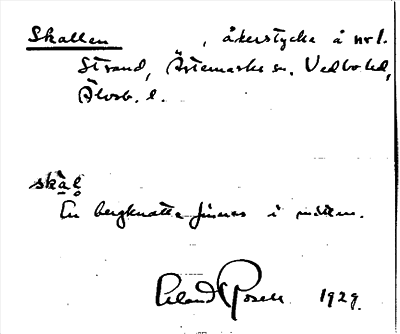 Skallen , åkerstycke å nr 1.
Strand, Ärtemarks sn. Vedbo hd,
Älvsb. l.
skàl̥
En bergknatte finnes i mitten.
Erland Rosell 1929.